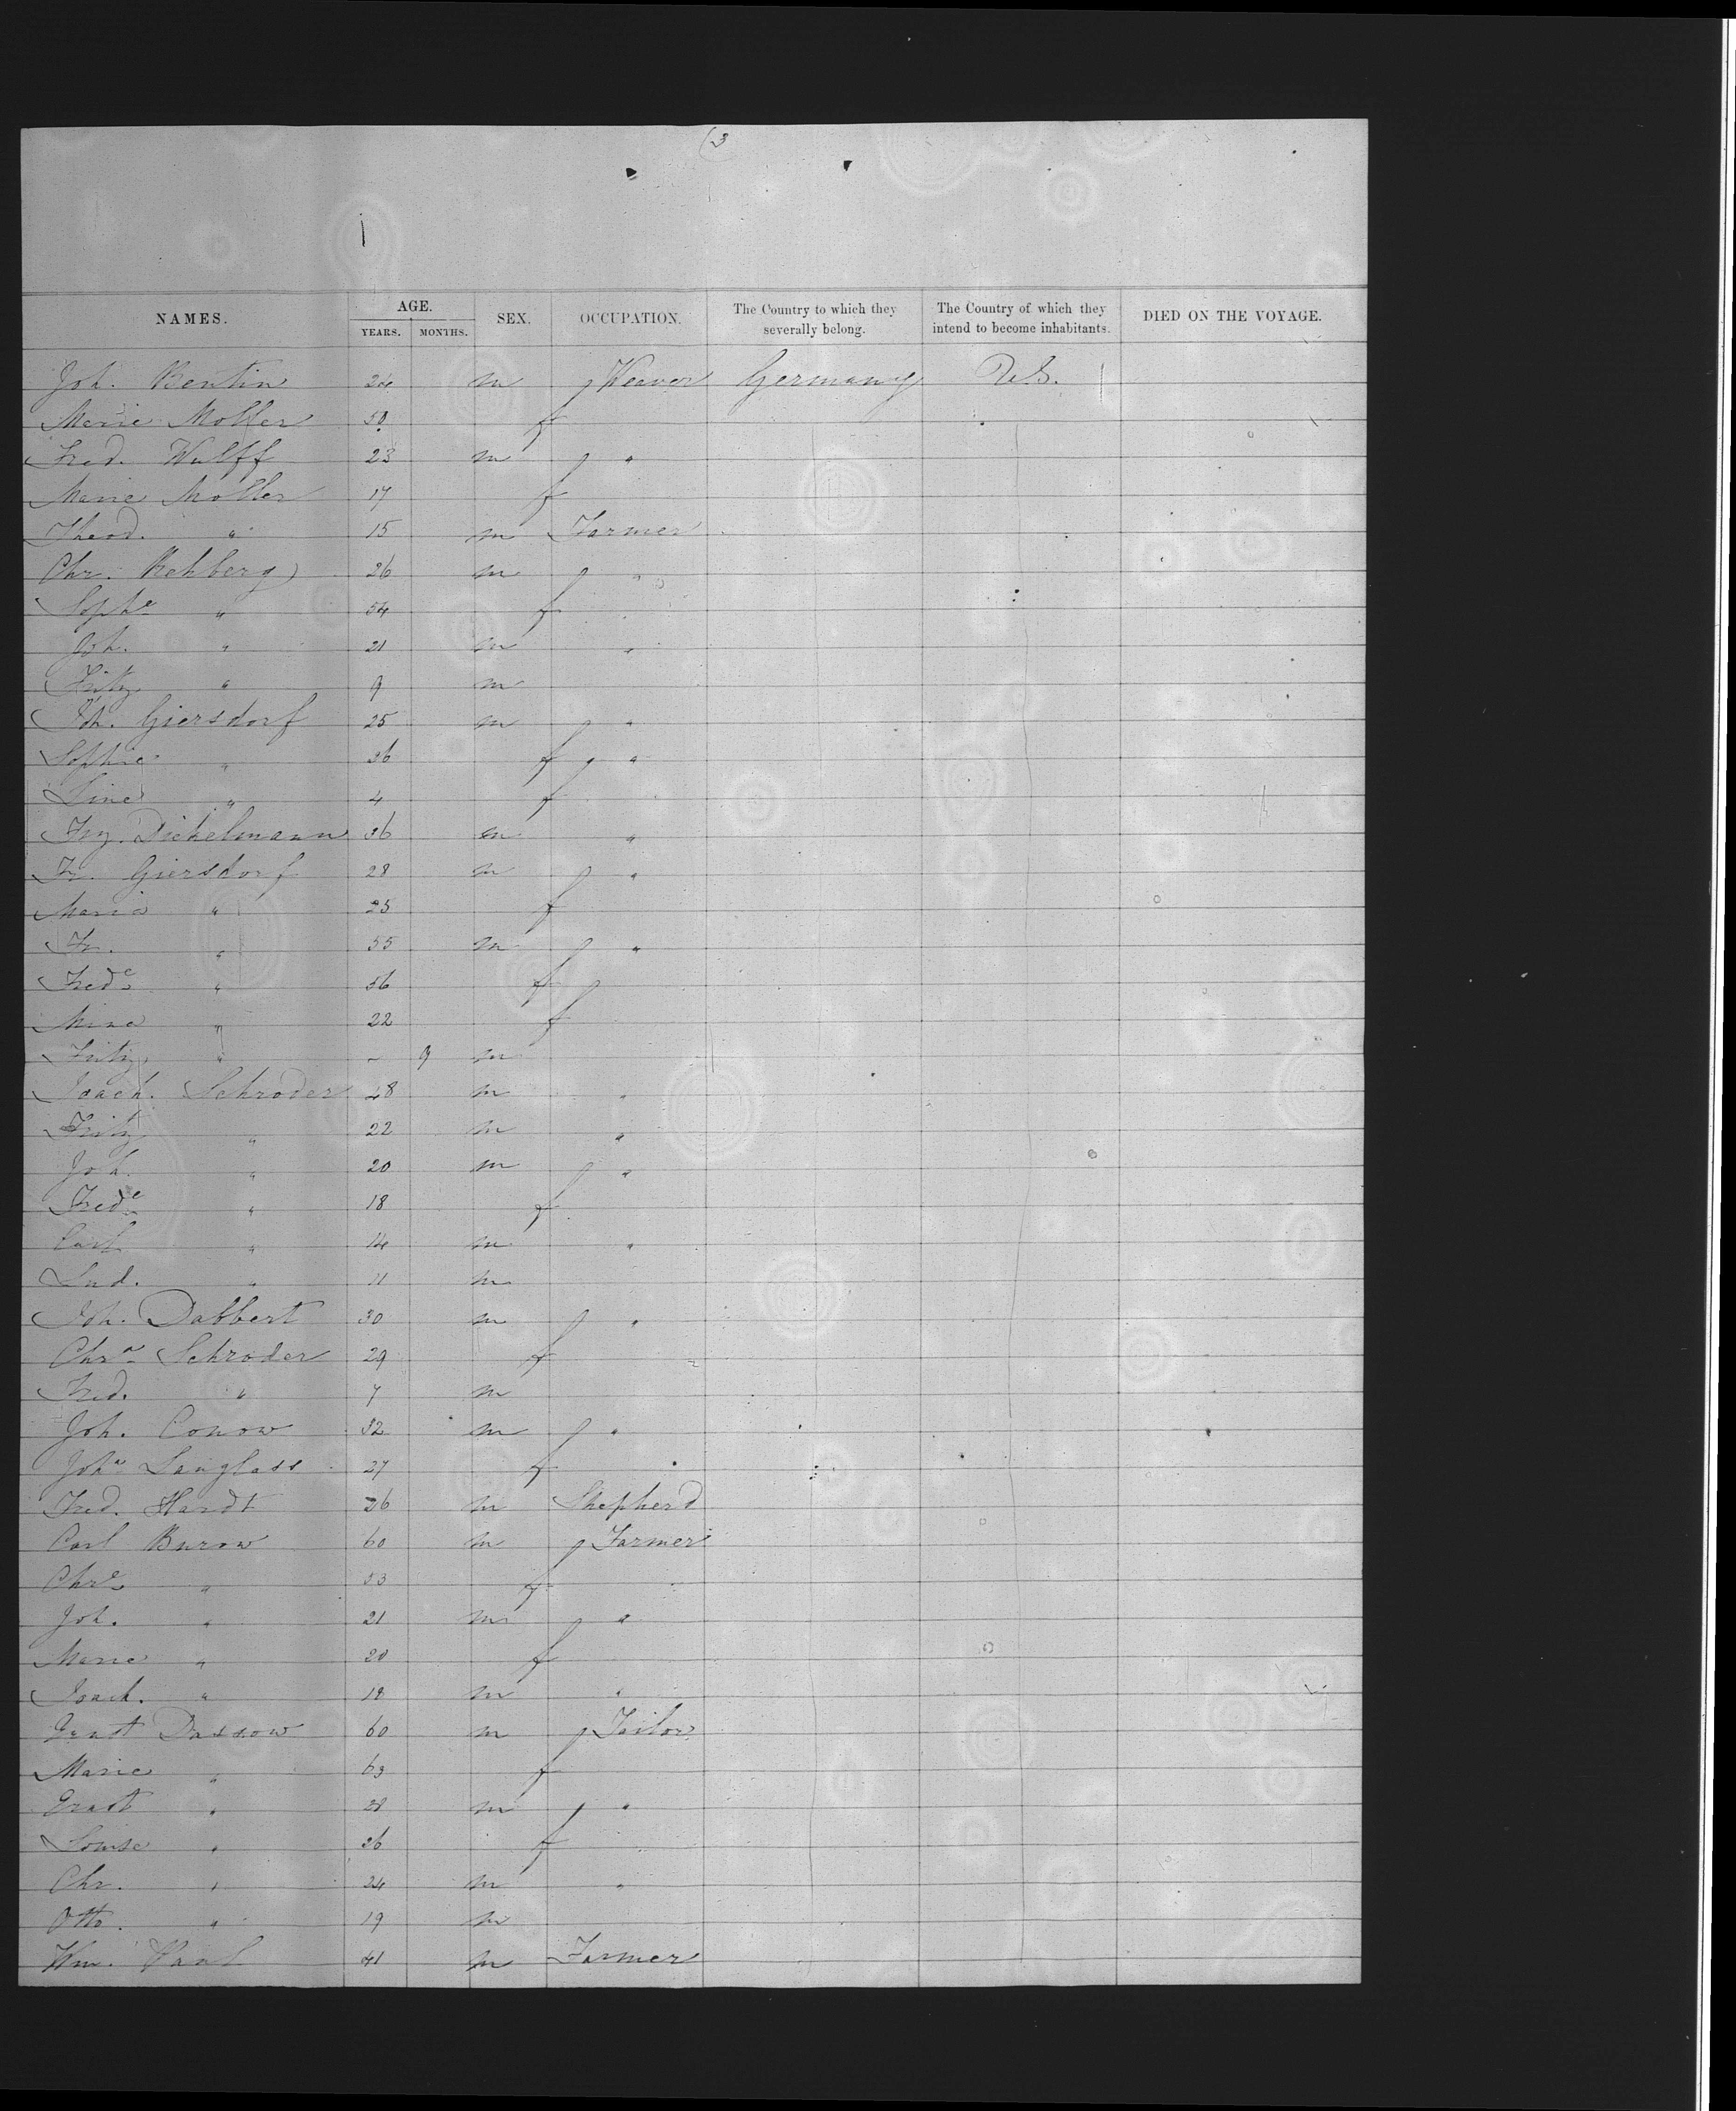 (3
NAMES. AGE. YEARS. MONTHS. SEX. OCCUPATION. The Country to which they severally belong. The Country of which they intend to become inhabitants. DIED ON THE VOYAGE.
Joh. Bentin 24 m Weaver Germany U.S.
Marie Moller 50 f
Fred. Wulff 23 m "
Marie Moller 17 f
Theod. " 15 m Farmer
Chr. Rehberg 26 m "
Soph.e " 54 f
Joh. " 21 m "
Fritz " 9 m
Joh. Giersdorf 25 m "
Sophie " 36 f "
Line " 4 f
Frz. Dickelmann 36 m "
Fr. Giersdorf 28 m "
Maria " 25 f
Fr. " 55 m "
Fred.e " 56 f
Mina " 22 f
Fritz " - 9 m
Joach. Schroder 48 m "
Fritz " 22 m "
Joh. " 20 m "
Fred.e " 18 f
Carl " 14 m "
Lud. " 11 m
Joh. Dabbert 30 m "
Chr.a Schroder 29 f
Fred. " 7 m
Joh. Conow 32 m "
Joh.a Langlass 27 f
Fred. Hardt 36 m Shepherd
Carl Burow 60 m Farmer
Chr.e " 53 f
Joh. " 21 m "
Marie " 20 f
Joach. " 18 m "
Ernst Dassow 60 m Tailor
Marie " 63 f
Ernst " 28 m "
Louise " 26 f
Chr. " 24 m "
Otto. " 19 m
Wm. Paul 41 m Farmer